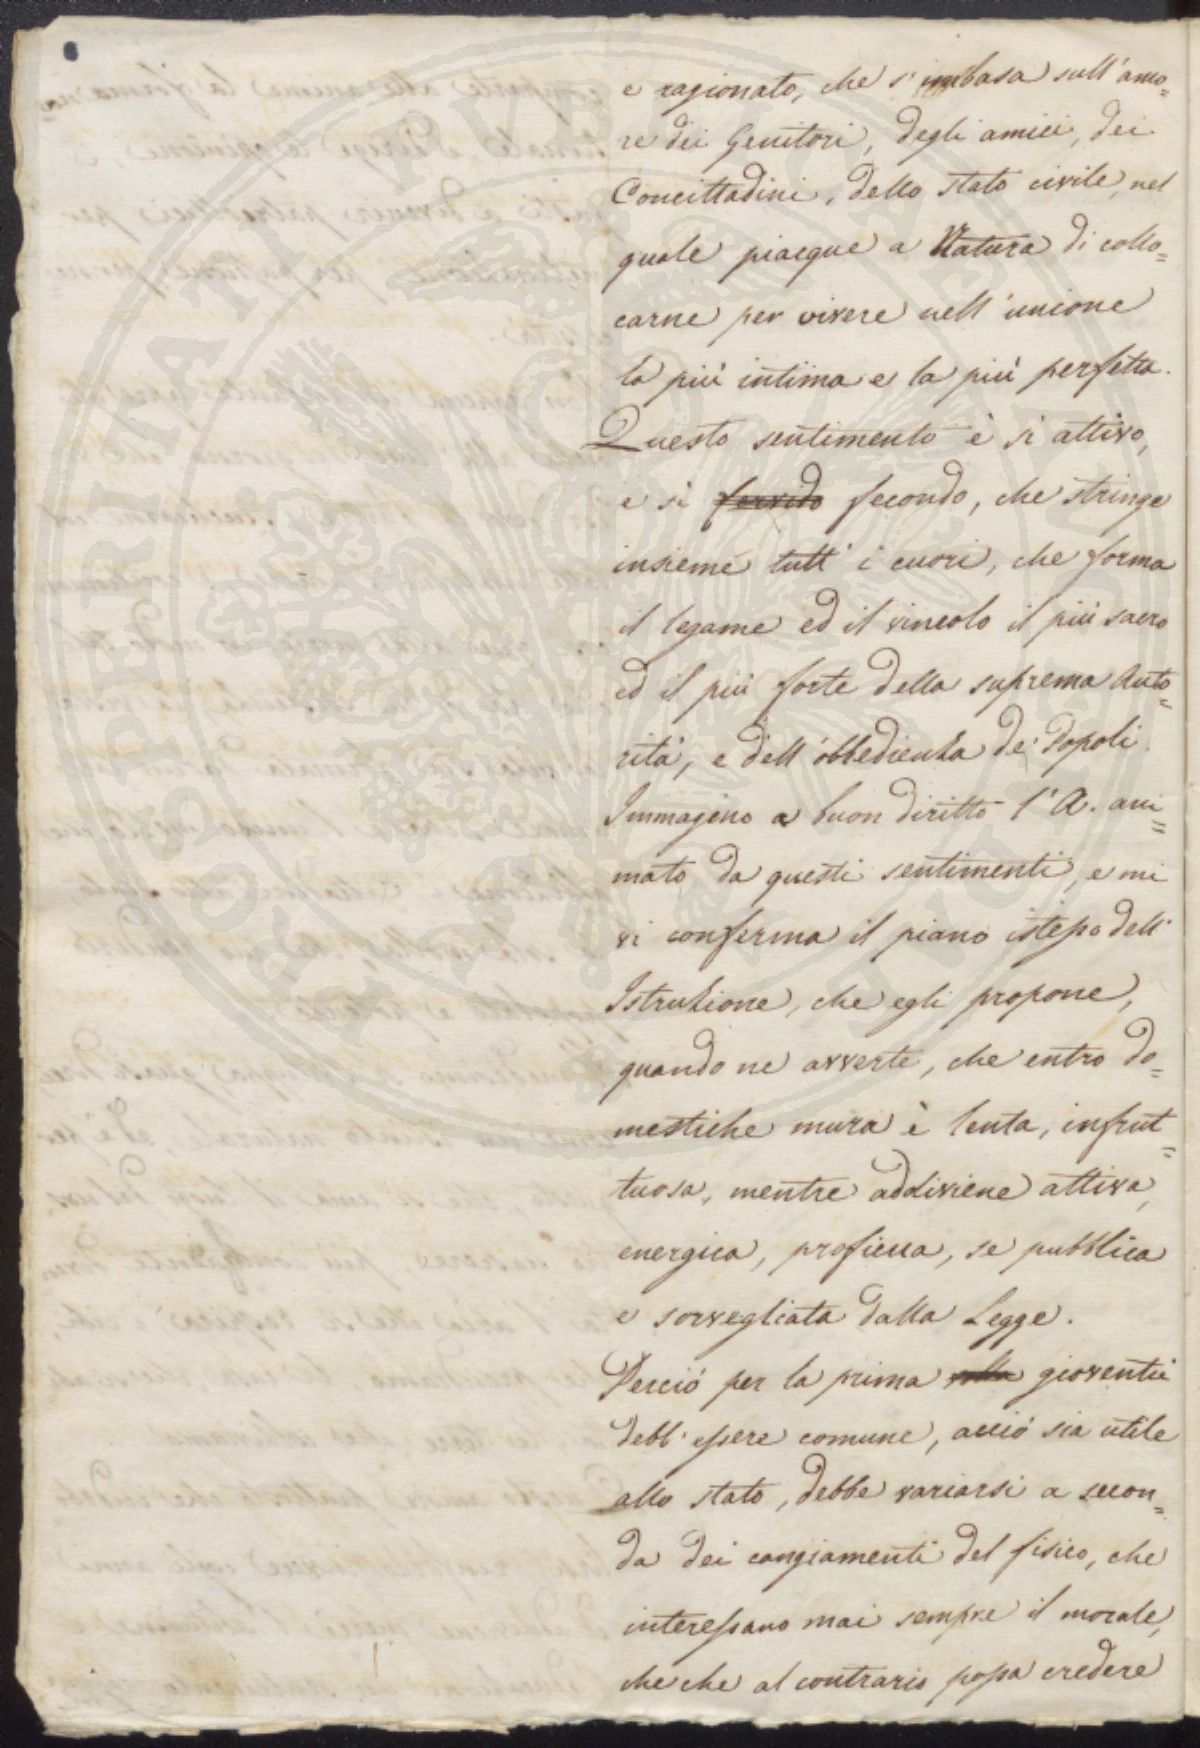 e ragionato, che s'imbasa sull'amo=
re dei Genitori, degli amici, dei
Concittadini, dello stato civile, nel
quale piacque a Natura di collo=
carne per vivere nell'unione
la più intima e la più perfetta.
Questo sentimento è sì attivo,
e sì fervido fecondo, che stringe
insieme tutt'i cuori, che forma
il legame ed il vincolo il più sacro
ed il più forte della suprema Auto=
rità, e dell'obbedienza de' Popoli.
Immagino a buon diritto l'A. ani=
mato da questi sentimenti, e mi
vi conferma il piano istesso dell'
Istruzione, che egli propone,
quando ne avverte, che entro do=
mestiche mura è lenta, infrut=
tuosa, mentre addiviene attiva,
energica, proficua, se pubblica
e sorvegliata dalla Legge.
Perciò per la prima gioventù
debb'essere comune, acciò sia utile
allo stato, debbe variarsi a secon=
da dei cangiamenti del fisico, che
interessano mai sempre il morale,
che che al contrario possa credere